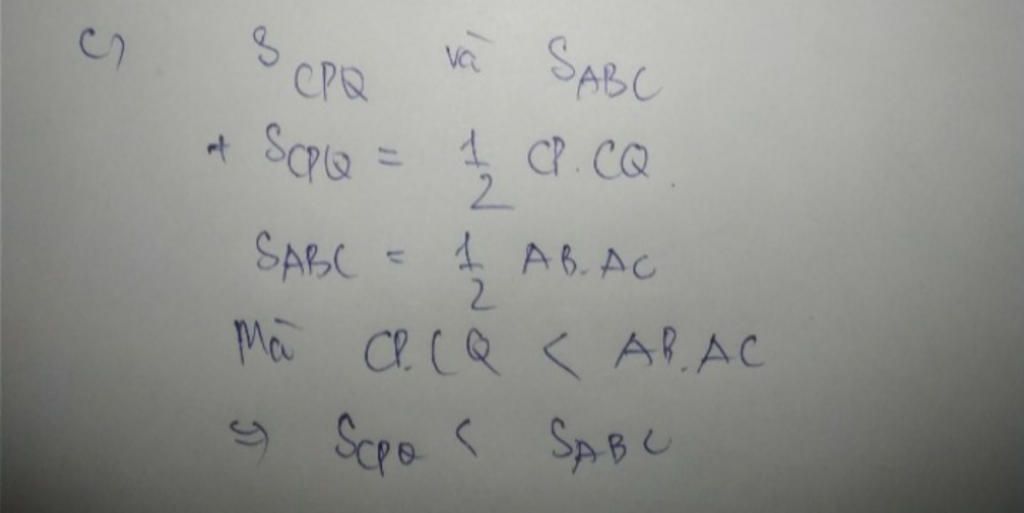 c) S CPQ và S ABC
+ S CPQ = 1/2 CP.CQ.
S ABC = 1/2 AB.AC
Mà CP.CQ < AB.AC
=> S CPQ < S ABC